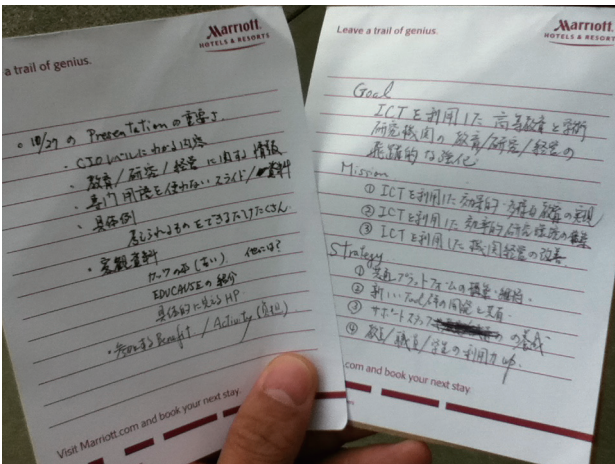 Marriott
HOTELS & RESORTS
a trail of genius.
・10/27の Presentationの重要さ.
・CIOレベルにわかる内容
・教育/研究/経営に関する情報
・専門用語を使わないスライド/資料
・具体例
見せられるものをできるだけたくさん.
・客観資料
(古い) 他には?
EDUCAUSEの紹介
具体的に見えるHP
・参加するBenefit / Activity (負担)
Visit Marriott.com and book your next stay.
Leave a trail of genius.
Marriott
HOTELS & RESORTS
Goal
ICTを利用した高等教育と学術
研究機関の教育/研究/経営の
飛躍的な強化
Mission
① ICTを利用した効率的・多様な教育の実現
② ICTを利用した効率的/研究環境の構築
③ ICTを利用した機関経営の改善.
Strategy
① 共通プラットフォームの構築・維持.
② 新しいTool等の開発と共有.
③ サポートスタッフの養成
④ 教員/職員/学生の利用力up.
.com and book your next stay.